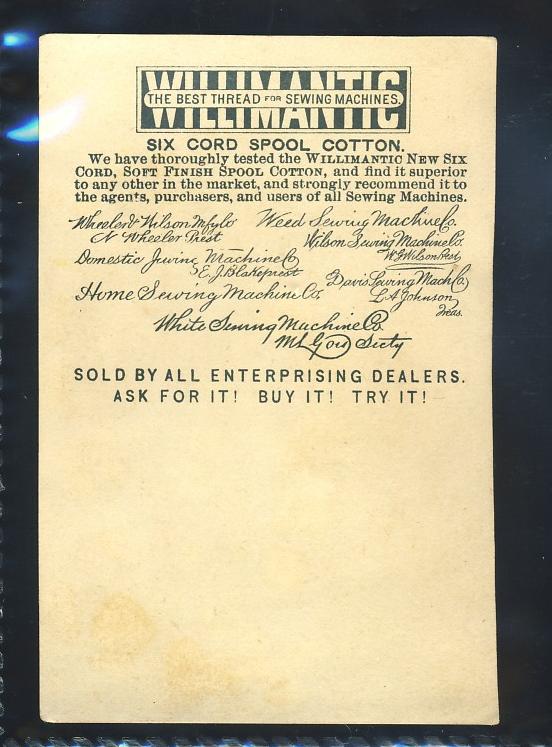 WILLIMANTIC
THE BEST THREAD FOR SEWING MACHINES.
SIX CORD SPOOL COTTON.
We have thoroughly tested the WILLIMANTIC NEW SIX
CORD, SOFT FINISH SPOOL COTTON, and find it superior
to any other in the market, and strongly recommend it to
the agents, purchasers, and users of all Sewing Machines.
Wheeler & Wilson Mfg Co Weed Sewing Machine Co.
N Wheeler Prest Wilson Sewing Machine Co.
W G Wilson Prest
Domestic Sewing Machine Co
E. J. Blake prest Davis Sewing Mach Co.
Home Sewing Machine Co. L A Johnson
Treas.
White Sewing Machine Co.
Secty
SOLD BY ALL ENTERPRISING DEALERS.
ASK FOR IT! BUY IT! TRY IT!